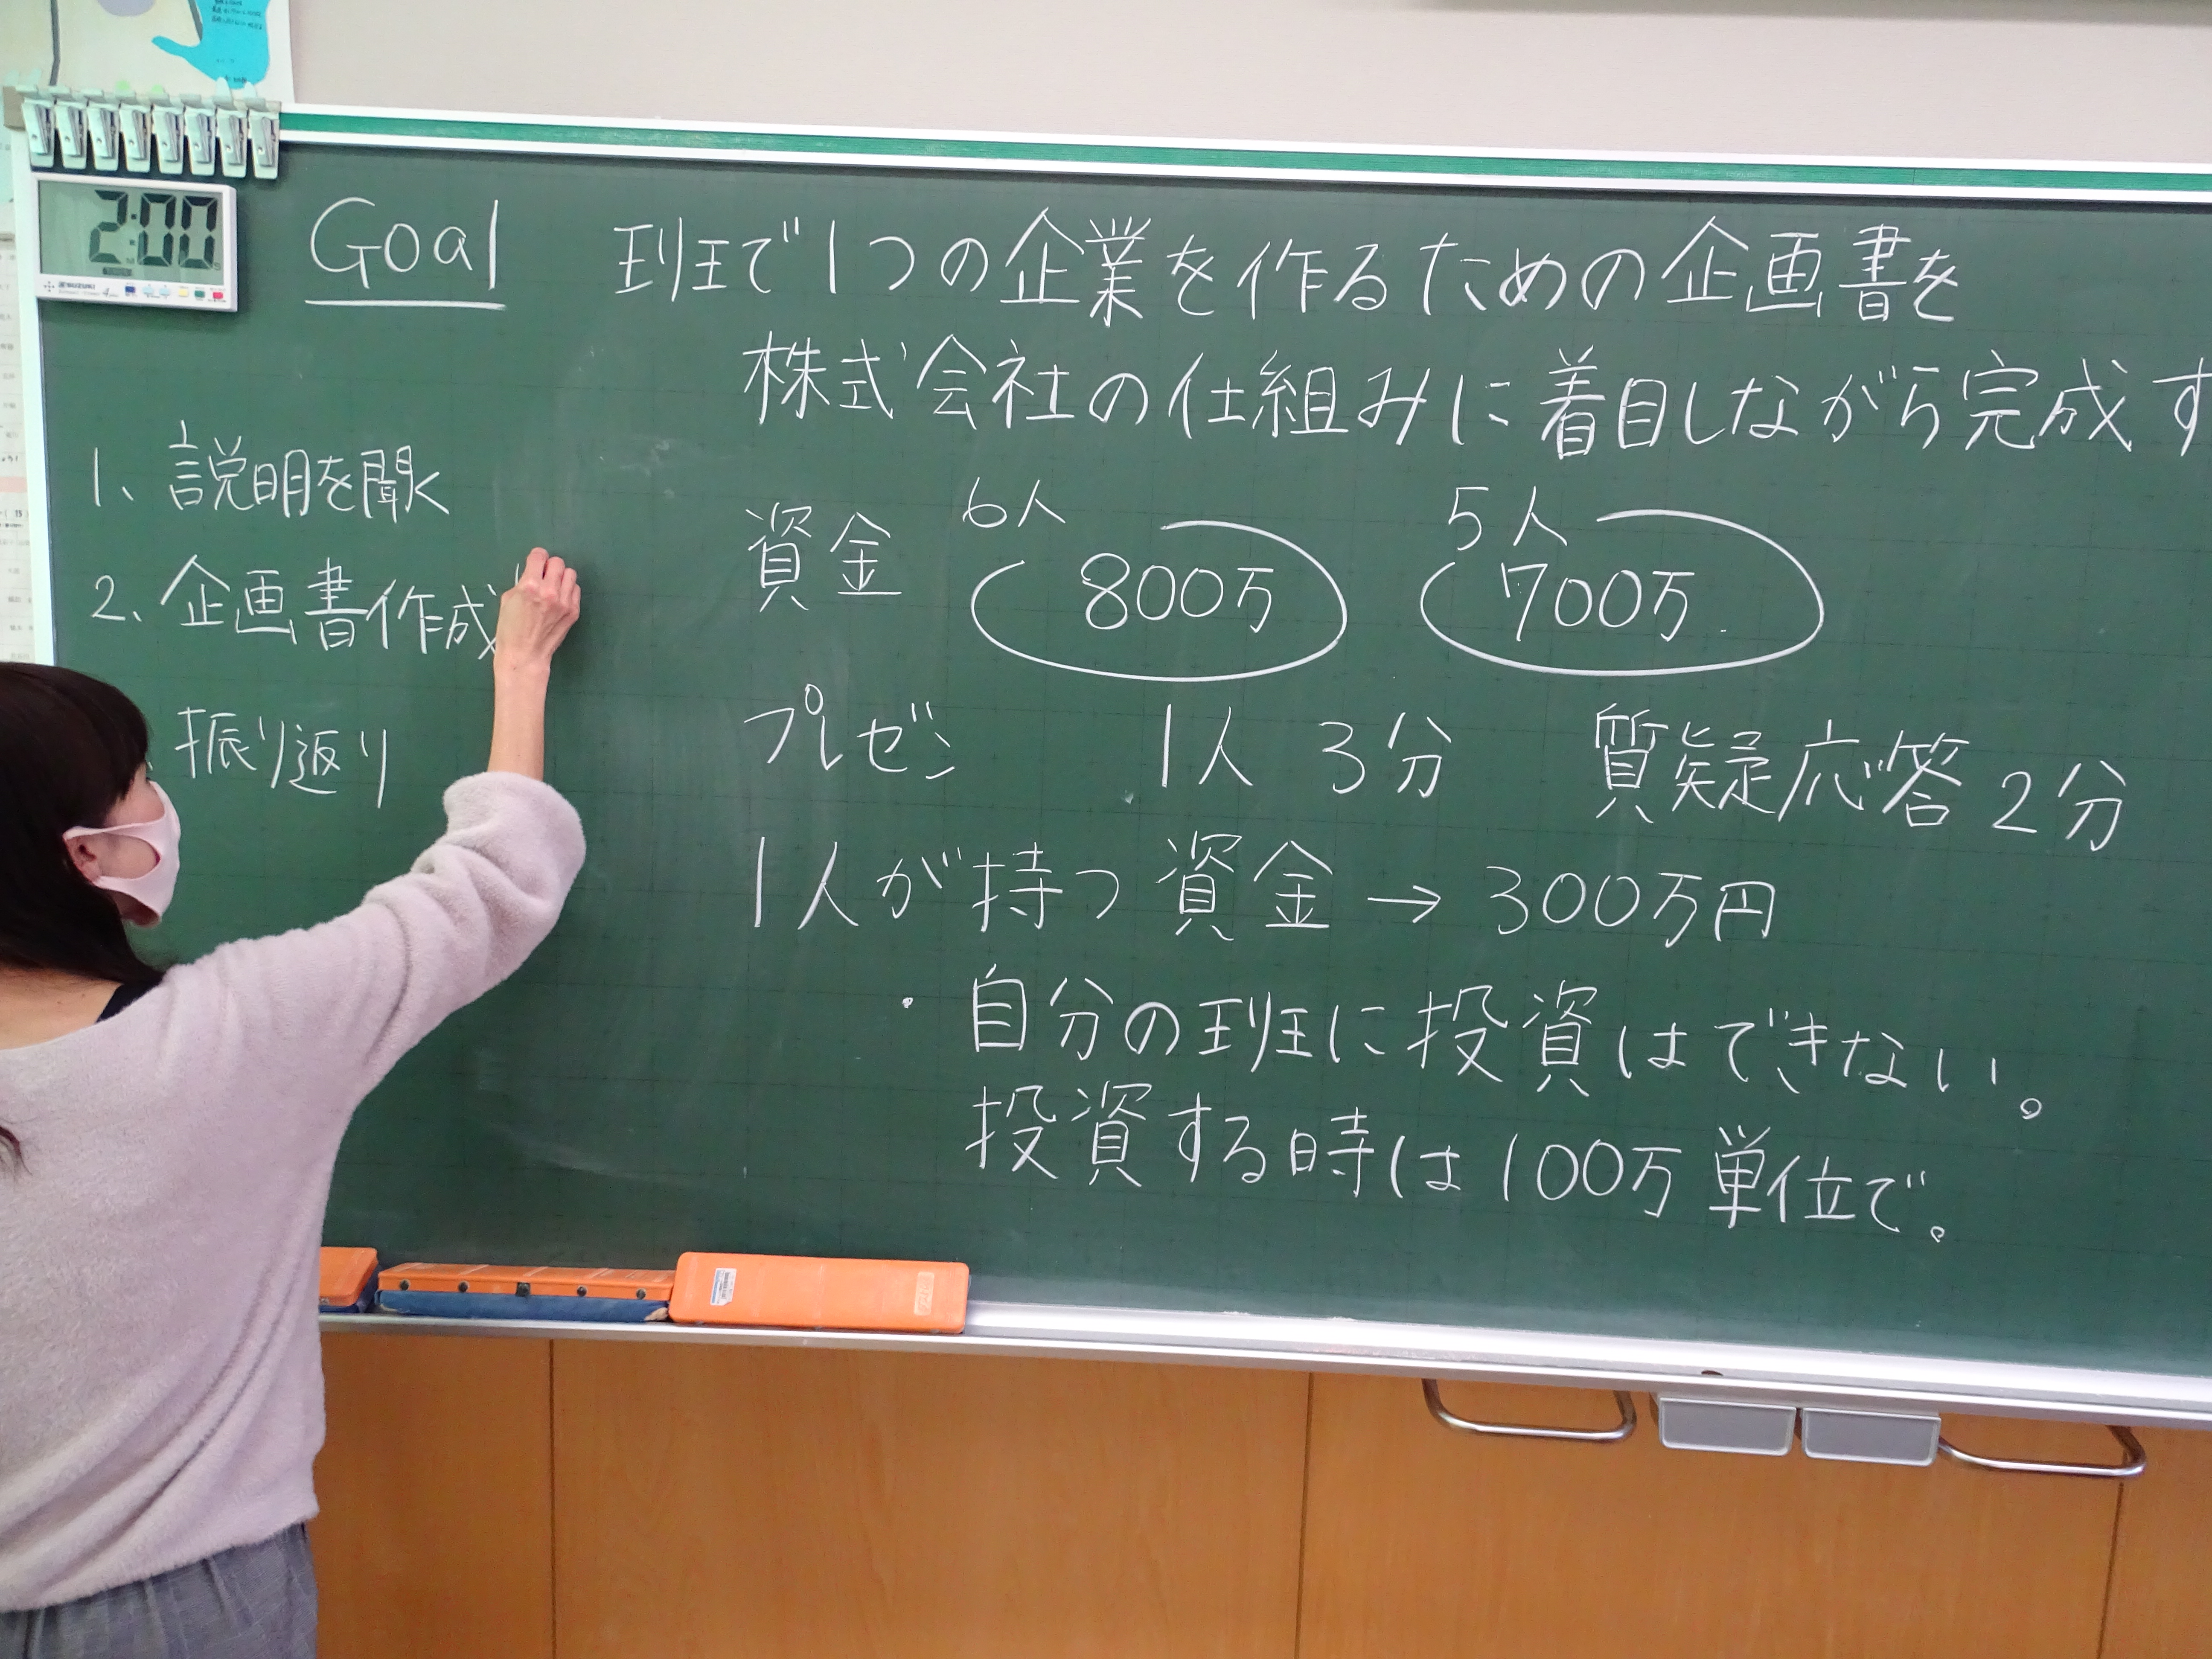 2:00
SUZUKI
Goal
班で1つの企業を作るための企画書を
株式会社の仕組みに着目しながら完成す
1、説明を聞く
2、企画書作成
振り返り
資金 6人 800万 5人 700万
プレゼン 1人 3分 質疑応答 2分
1人が持つ資金→300万円
・自分の班に投資はできない。
投資する時は100万単位で。